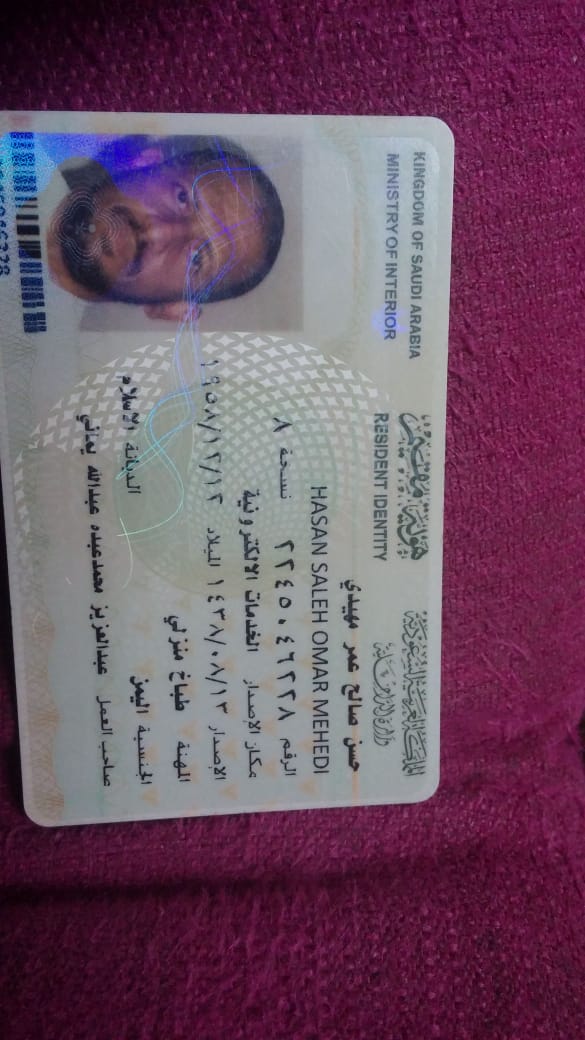 المملكة العربية السعودية
وزارة الداخلية
هوية مقيم
RESIDENT IDENTITY
KINGDOM OF SAUDI ARABIA
MINISTRY OF INTERIOR
حسن صالح عمر مهيدي
HASAN SALEH OMAR MEHEDI
الرقم ٢٢٤٥٠٤٦٢٢٨ نسخة ٨
مكان الإصدار الخدمات الالكترونية
الإصدار ١٤٣٨/٠٨/١٣ الميلاد ١٩٥٨/١٢/١٢
المهنة طباخ منزلي
الجنسية اليمن الديانة الاسلام
صاحب العمل عبدالعزيز محمدعبده عبدالله يماني